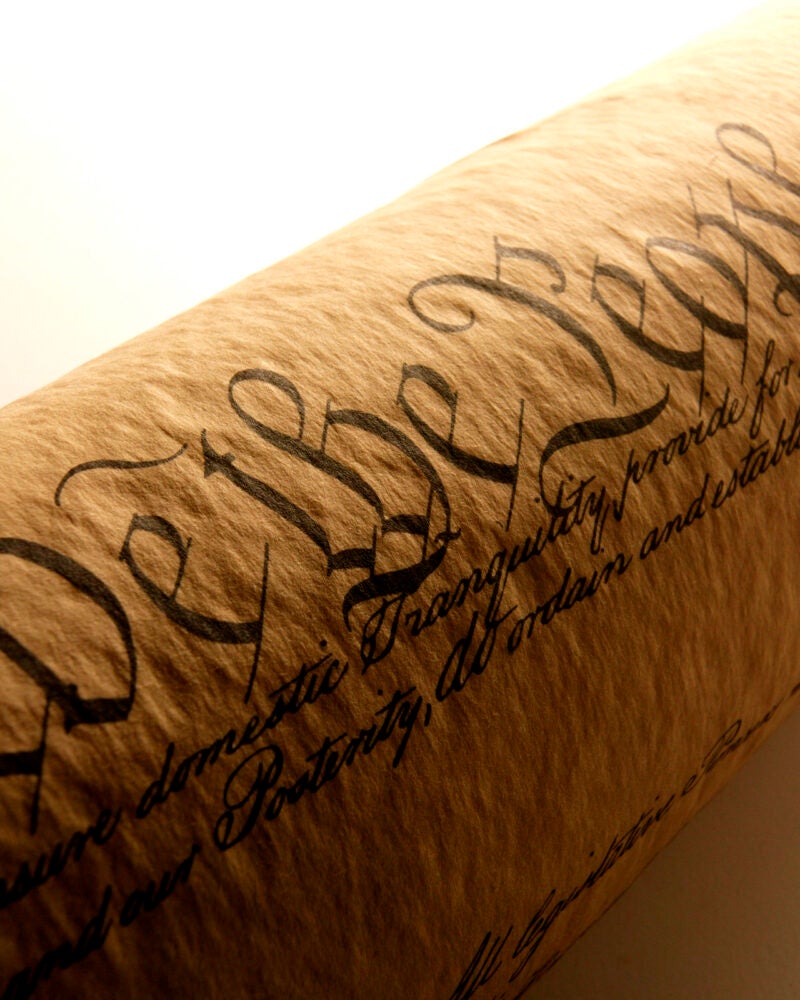 We the Peopl
nsure domestic Tranquility, provide for
and our Posterity, do ordain and establi
All legislative Powe